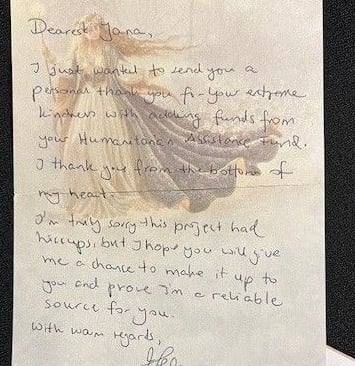 Dearest Jana,
I just wanted to send you a
personal thank you fr your extreme
kindness with adding funds from
your Humanitarian Assistance Fund.
I thank you from the bottom of
my heart.
I'm truly sorry this project had
hiccups, but I hope you will give
me a chance to make it up to
you and prove I'm a reliable
source for you.
With warm regards,